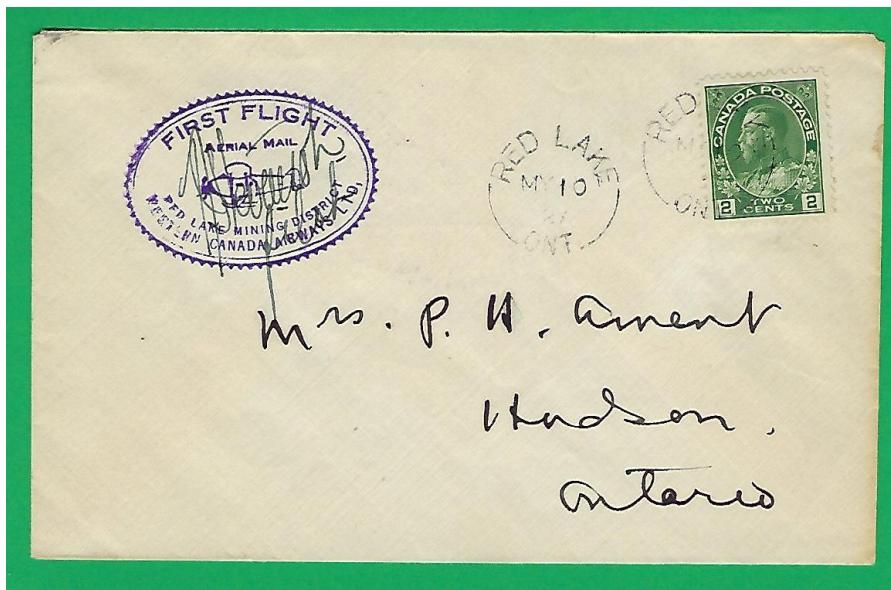 FIRST FLIGHT
AERIAL MAIL
RED LAKE MINING DISTRICT
WESTERN CANADA AIRWAYS LTD.
RED LAKE
MY 10
ONT.
RED
ON
CANADA POSTAGE
2 TWO CENTS 2
Mrs. P. H. Ament
Hudson,
Ontario